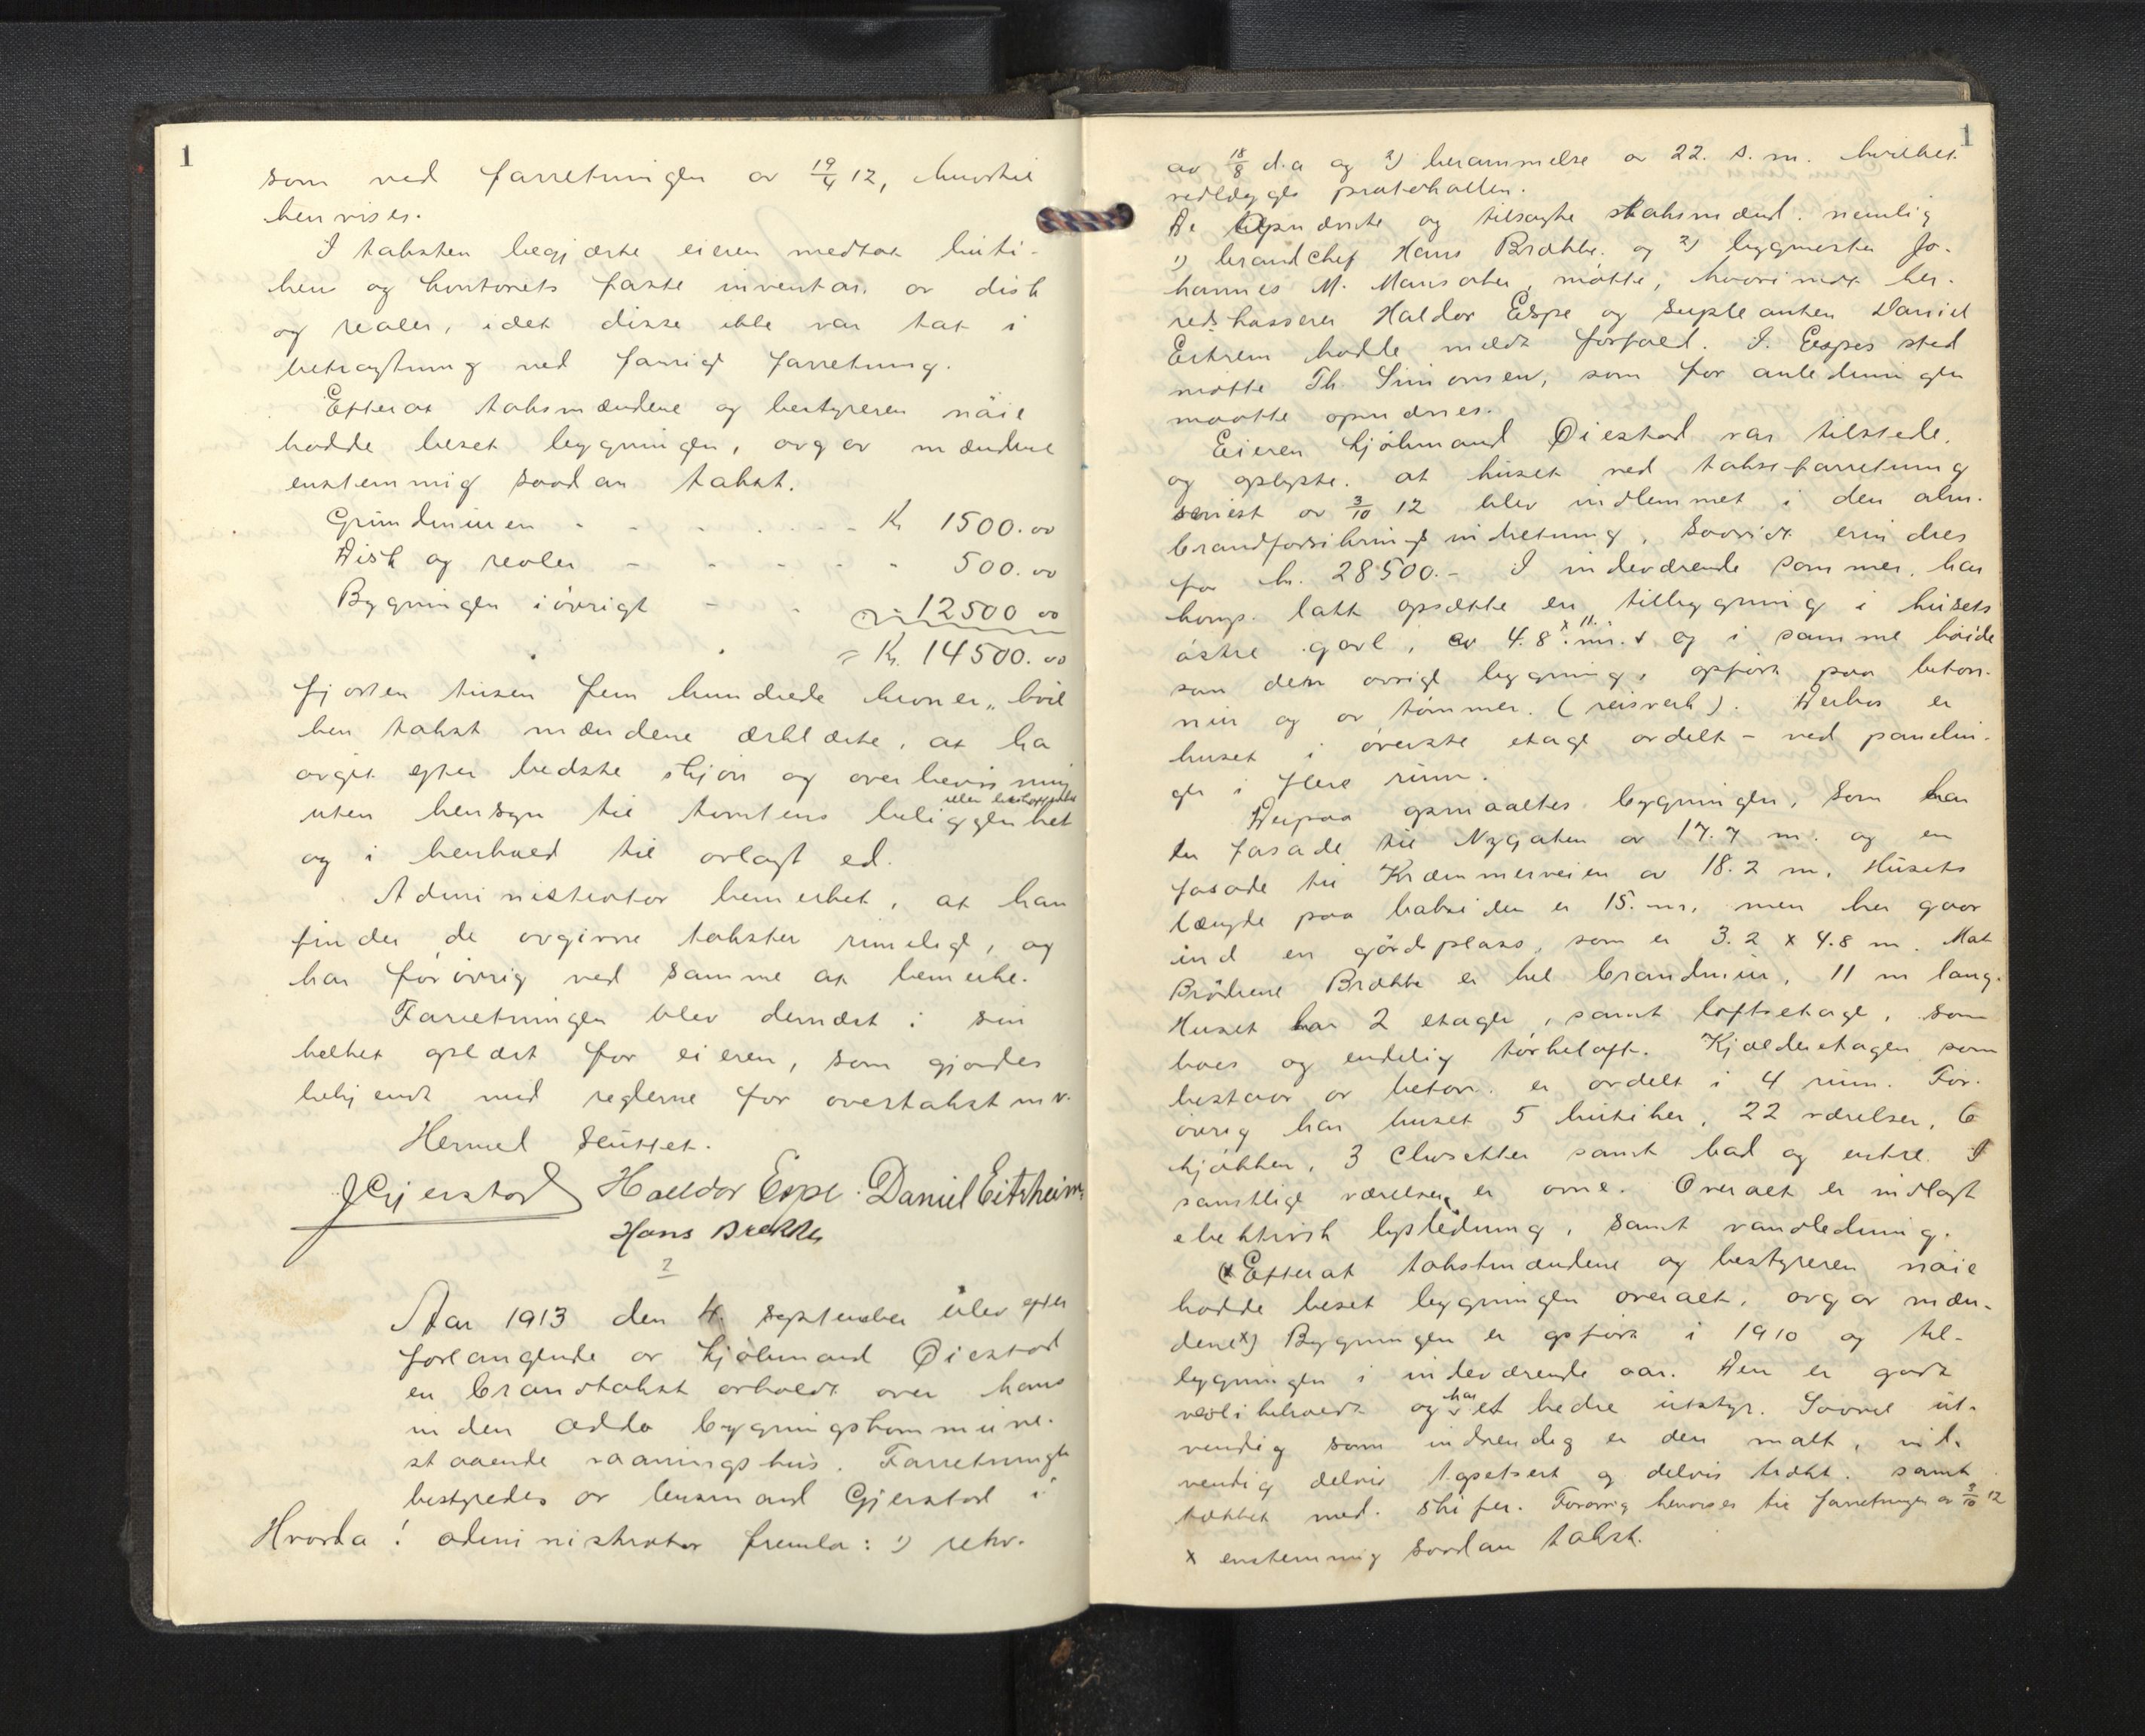 1
som ved forretningen av 19/4 12, hvortil
henvises.
I taksten begjærte eieren medtat buti-
ken og kontorets faste inventar av disk
og reoler, idet disse ikke var tat i
betragtning ved forrige forretning.
Efterat taksmændene og bestyreren nöie
hadde beset bygningen, avgav mændene
enstemmig saadan takst.
Grundmuren - - - - - - Kr 1500.00
Disk og reoler - - - - - 500.00
Bygningen i övrigt - - - 12500 00
= Kr. 14500.00
fjorten tusen fem hundrede kroner, hvil
ken takst mændene erklærte, at ha
avgit efter bedste skjön og overbevisning
uten hensyn til tomtens beliggenhet
eller beskaffenhet
og i henhold til avlagt ed.
Administrator bemerket, at han
finder de avgivne takster rimelige, og
har forövrig ved samme at bemerke.
Forretningen blev dernæst i sin
helhet oplæst for eieren, som gjordes
bekjendt med reglerne for overtakst m.v.
Hermed sluttet.
J Gjerstad Halldor Espe. Daniel Eitrheim.
Hans Brække
2
Aar 1913 den 4. september blev efter
forlangende av kjöbmand Øiestad
en brandtakst avholdt over hans
inden Odda bygningskommune
staaende vaaningshus. Forretningen
bestyredes av lensmand Gjerstad i
Hvorda! administrator fremla: 1) rekv.
1
av 18/8 d.a og 2) berammelse av 22. s.m. hvilket
vedlægges protokollen.
De opnævnte og tilsagte skatsmænd. nemlig
1) brandchef Hans Brække. og 2) bygmester Jo-
hannes M. Mansaker, mötte, hvorimot her-
redskasserer Haldor Espe og supleanten Daniel
Eitrem hadde meldt forfald. I. Espes sted
mötte Th. Simonsen, som for anledningen
maatte opnævnes.
Eieren kjöbmand Øiestad var tilstede,
og oplyste. at huset ved taksforretning
senest av 3/10 12 blev indlemmet i den alm.
brandforsikringsindretning, saavidt erindres
for kr. 28500.- I indeværende sommer, har
komp. latt opsætte en tilbygning i husets
östre gavl, av 4.8 x 11. m. og i samme höide
som den övrige bygning, opfört paa beton-
mur og av tömmer. (reisverk). Derhos er
huset i överste etage avdelt - ved panelin-
ger i flere rum.
Derpaa opmaaltes bygningen, som har
en fasade til Nygaten av 17.7 m. og en
fasade til Kræmmerveien av 18.2 m. Husets
længde paa baksiden er 15. m, men her gaar
ind en gårdsplass, som er 3.2 x 4.8 m. Mot
Brödrene Brække er hel brandmur, 11 m lang.
Huset har 2 etager, samt loftsetage, som
boes og endelig törkeloft. Kjælderetagen som
bestaar av beton. er avdelt i 4 rum. For-
övrig har huset 5 butiker, 22 værelser, 6
kjökken, 3 Closetter samt bad og entre. I
samtlige værelser er ovne. Overalt er indlagt
elektrisk lysledning, samt vandledning.
(x Efterat takstmændene og bestyreren nöie
hadde beset bygningen overalt, avgav mæn-
dene x) Bygningen er opfört i 1910 og til-
bygningen i indeværende aar. Den er godt
vedlikeholdt og har et bedre utstyr. Saavel ut-
vendig som indvendig er den malt, ind-
vendig delvis tapetsert og delvis trækt. samt
tækket med. skifer. Forövrig henvises til forretningen av 3/10 12
x enstemmig saadan takst.